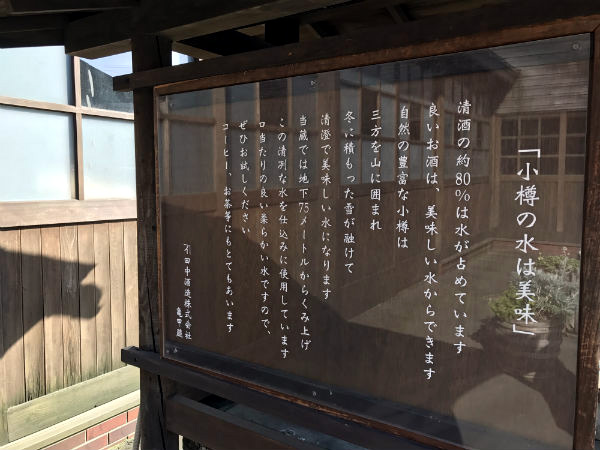 「小樽の水は美味」
清酒の約80％は水が占めています
良いお酒は、美味しい水からできます
自然の豊富な小樽は
三方を山に囲まれ
冬に積もった雪が融けて
清澄で美味しい水になります
当蔵では地下75メートルからくみ上げ
この清冽な水を仕込みに使用しています
口当たりの良い柔らかい水ですので、
ぜひお試しください
コーヒー、お茶等にもとてもあいます
田中酒造株式会社
亀甲蔵